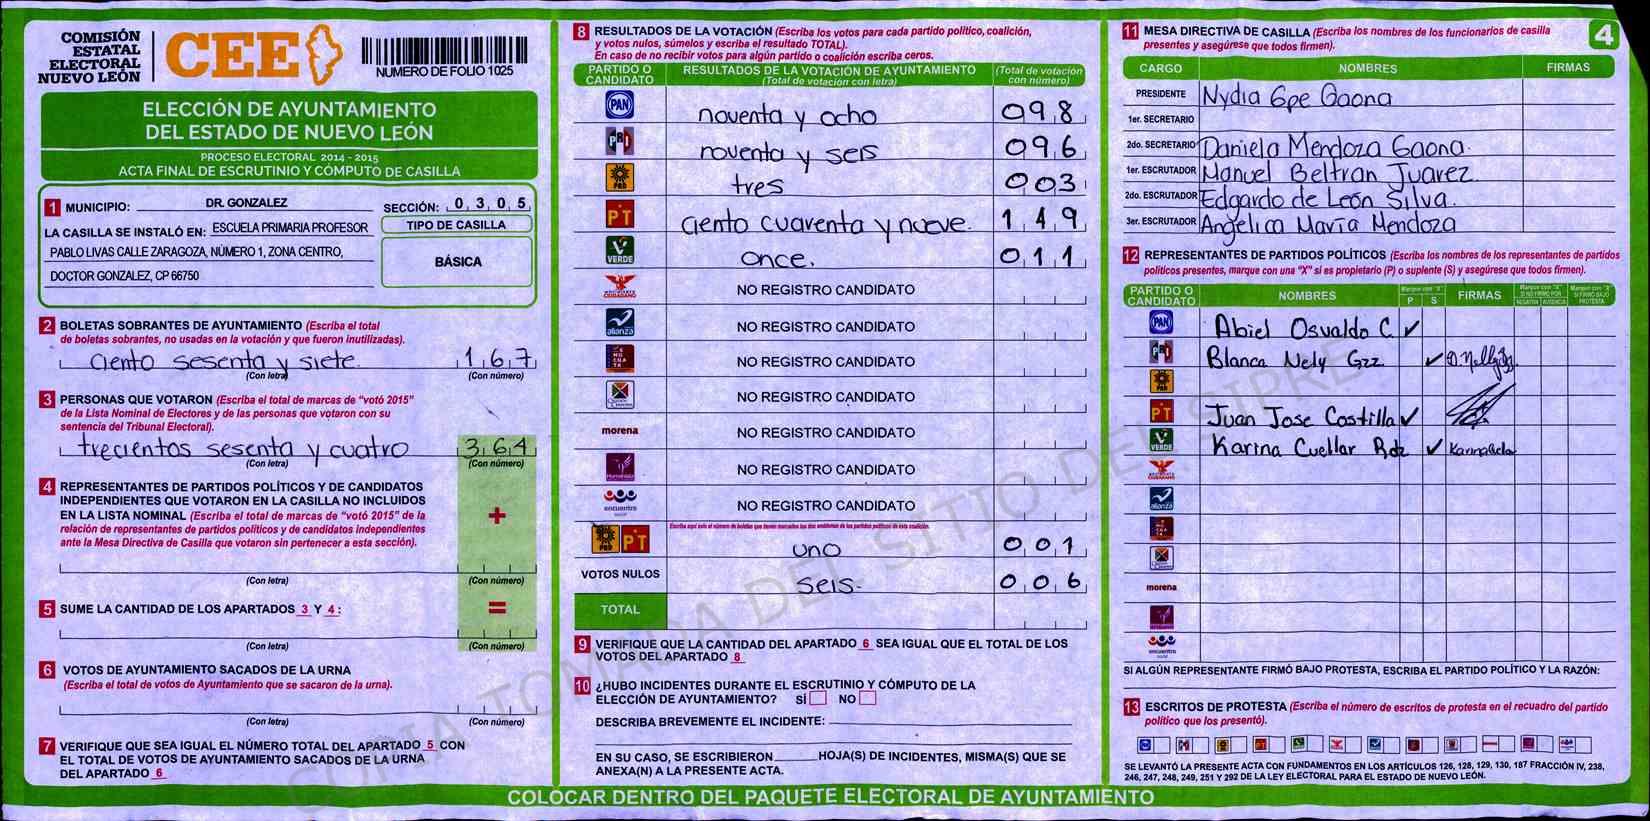 COMISIÓN
ESTATAL
ELECTORAL
NUEVO LEÓN
CEE
NUMERO DE FOLIO 1025
ELECCIÓN DE AYUNTAMIENTO
DEL ESTADO DE NUEVO LEÓN
PROCESO ELECTORAL 2014 - 2015
ACTA FINAL DE ESCRUTINIO Y CÓMPUTO DE CASILLA
1 MUNICIPIO: DR. GONZALEZ SECCIÓN: 0 3 0 5
LA CASILLA SE INSTALÓ EN: ESCUELA PRIMARIA PROFESOR
PABLO LIVAS CALLE ZARAGOZA, NÚMERO 1, ZONA CENTRO,
DOCTOR GONZALEZ, CP 66750
TIPO DE CASILLA
BÁSICA
2 BOLETAS SOBRANTES DE AYUNTAMIENTO (Escriba el total
de boletas sobrantes, no usadas en la votación y que fueron inutilizadas).
ciento sesenta y siete. 1 6 7
(Con letra) (Con número)
3 PERSONAS QUE VOTARON (Escriba el total de marcas de "votó 2015"
de la Lista Nominal de Electores y de las personas que votaron con su
sentencia del Tribunal Electoral).
trecientos sesenta y cuatro 3 6 4
(Con letra) (Con número)
4 REPRESENTANTES DE PARTIDOS POLÍTICOS Y DE CANDIDATOS
INDEPENDIENTES QUE VOTARON EN LA CASILLA NO INCLUIDOS
EN LA LISTA NOMINAL (Escriba el total de marcas de "votó 2015" de la
relación de representantes de partidos políticos y de candidatos independientes
ante la Mesa Directiva de Casilla que votaron sin pertenecer a esta sección).
+
(Con letra) (Con número)
5 SUME LA CANTIDAD DE LOS APARTADOS 3 Y 4:
=
(Con letra) (Con número)
6 VOTOS DE AYUNTAMIENTO SACADOS DE LA URNA
(Escriba el total de votos de Ayuntamiento que se sacaron de la urna).
(Con letra) (Con número)
7 VERIFIQUE QUE SEA IGUAL EL NÚMERO TOTAL DEL APARTADO 5 CON
EL TOTAL DE VOTOS DE AYUNTAMIENTO SACADOS DE LA URNA
DEL APARTADO 6
8 RESULTADOS DE LA VOTACIÓN (Escriba los votos para cada partido político, coalición,
y votos nulos, súmelos y escriba el resultado TOTAL).
En caso de no recibir votos para algún partido o coalición escriba ceros.
PARTIDO O CANDIDATO RESULTADOS DE LA VOTACIÓN DE AYUNTAMIENTO (Total de votación con letra) (Total de votación con número)
PAN noventa y ocho 0 9 8
PRI noventa y seis 0 9 6
PRD tres 0 0 3
PT ciento cuaventa y nueve. 1 4 9
VERDE once. 0 1 1
NO REGISTRO CANDIDATO
alianza NO REGISTRO CANDIDATO
NO REGISTRO CANDIDATO
NO REGISTRO CANDIDATO
morena NO REGISTRO CANDIDATO
NO REGISTRO CANDIDATO
encuentro social NO REGISTRO CANDIDATO
PRD PT uno 0 0 1
VOTOS NULOS seis. 0 0 6
TOTAL
9 VERIFIQUE QUE LA CANTIDAD DEL APARTADO 6 SEA IGUAL QUE EL TOTAL DE LOS
VOTOS DEL APARTADO 8
10 ¿HUBO INCIDENTES DURANTE EL ESCRUTINIO Y CÓMPUTO DE LA
ELECCIÓN DE AYUNTAMIENTO? SÍ NO
DESCRIBA BREVEMENTE EL INCIDENTE:
EN SU CASO, SE ESCRIBIERON HOJA(S) DE INCIDENTES, MISMA(S) QUE SE
ANEXA(N) A LA PRESENTE ACTA.
11 MESA DIRECTIVA DE CASILLA (Escriba los nombres de los funcionarios de casilla
presentes y asegúrese que todos firmen).
4
CARGO NOMBRES FIRMAS
PRESIDENTE Nydia Gpe Gaona
1er. SECRETARIO
2do. SECRETARIO Daniela Mendoza Gaona.
1er. ESCRUTADOR Manuel Beltran Juarez.
2do. ESCRUTADOR Edgardo de León Silva.
3er. ESCRUTADOR Angelica María Mendoza
12 REPRESENTANTES DE PARTIDOS POLÍTICOS (Escriba los nombres de los representantes de partidos
políticos presentes, marque con una "X" si es propietario (P) o suplente (S) y asegúrese que todos firmen).
PARTIDO O CANDIDATO NOMBRES Marque con "X" P S FIRMAS Marque con "X" SI NO FIRMÓ POR NEGATIVA AUSENCIA Marque con "X" SI FIRMÓ BAJO PROTESTA
PAN Abiel Osvaldo C. ✓
PRI Blanca Nely Gzz ✓
PRD
PT Juan Jose Costilla ✓
VERDE Karina Cuellar Rdz ✓
alianza
morena
encuentro social
SI ALGÚN REPRESENTANTE FIRMÓ BAJO PROTESTA, ESCRIBA EL PARTIDO POLÍTICO Y LA RAZÓN:
13 ESCRITOS DE PROTESTA (Escriba el número de escritos de protesta en el recuadro del partido
político que los presentó).
SE LEVANTÓ LA PRESENTE ACTA CON FUNDAMENTOS EN LOS ARTÍCULOS 126, 128, 129, 130, 187 FRACCIÓN IV, 238,
246, 247, 248, 249, 251 Y 292 DE LA LEY ELECTORAL PARA EL ESTADO DE NUEVO LEÓN.
COLOCAR DENTRO DEL PAQUETE ELECTORAL DE AYUNTAMIENTO
COPIA TOMADA DEL SITIO DEL SIPRE